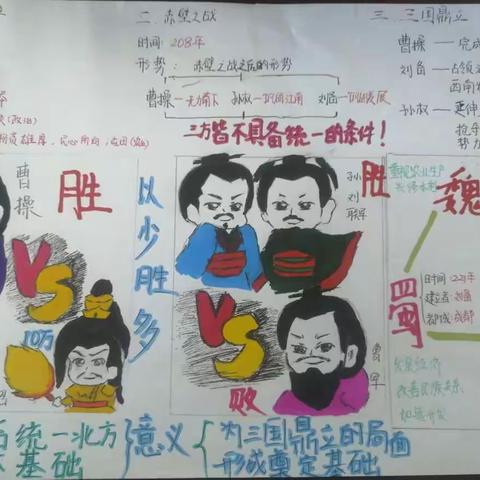 二.赤壁之战
时间:208年
形势:赤壁之战之后的形势
曹操—无力南下 孙权—巩固江南 刘备—巩固发展
三方皆不具备统一的条件!
三.三国鼎立
曹操—完成
刘备—占领
西南
孙权—延伸
势力
曹操
胜
VS
10万
以少胜多
孙刘联军
胜
VS
败
曹军
重视农业生产
兴修水利
魏
蜀
时间:221年
建立者:刘备
都城:成都
发展经济
改善民族关系
统一北方
基础
意义
为三国鼎立的局面
形成奠定基础